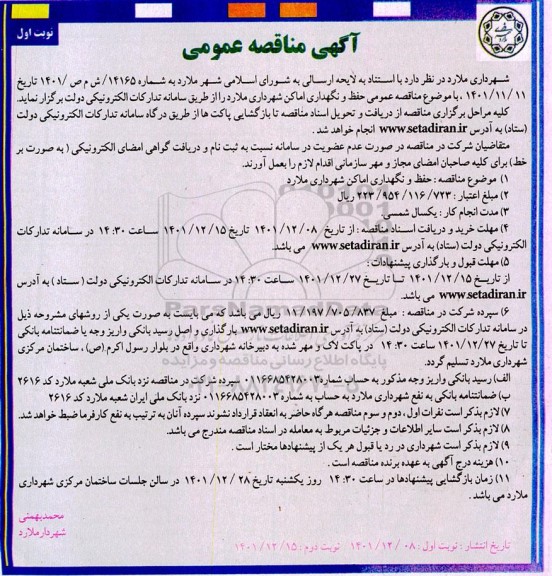 نوبت اول
آگهی مناقصه عمومی
شهرداری ملارد در نظر دارد با استناد به لایحه ارسالی به شورای اسلامی شهر ملارد به شماره ۱۴۱۶۵/ ش م ص /۱۴۰۱ تاریخ
۱۴۰۱/۱۱/۱۱ ، با موضوع مناقصه عمومی حفظ و نگهداری اماکن شهرداری ملارد را از طریق سامانه تدارکات الکترونیکی دولت برگزار نماید.
کلیه مراحل برگزاری مناقصه از دریافت و تحویل اسناد مناقصه تا بازگشایی پاکت ها از طریق درگاه سامانه تدارکات الکترونیکی دولت
(ستاد) به آدرس www.setadiran.ir انجام خواهد شد .
متقاضیان شرکت در مناقصه در صورت عدم عضویت در سامانه نسبت به ثبت نام و دریافت گواهی امضای الکترونیکی ( به صورت بر
خط) برای کلیه صاحبان امضای مجاز و مهر سازمانی اقدام لازم را بعمل آورند.
۱) موضوع مناقصه : حفظ و نگهداری اماکن شهرداری ملارد
۲) مبلغ اعتبار : ۲۲۳/۹۵۴/۱۱۶/۷۲۳ ریال
۳) مدت انجام کار : یکسال شمسی.
۴) مهلت خرید و دریافت اسناد مناقصه : از تاریخ ۱۴۰۱/۱۲/۰۸ تاریخ ۱۴۰۱/۱۲/۱۵ ساعت ۱۴:۳۰ در سامانه تدارکات
الکترونیکی دولت (ستاد) به آدرس www.setadiran.ir می باشد.
۵) مهلت قبول و بارگذاری پیشنهادات :
از تاریخ ۱۴۰۱/۱۲/۱۵ تا تاریخ ۱۴۰۱/۱۲/۲۷ ساعت ۱۴:۳۰ در سامانه تدارکات الکترونیکی دولت ( ستاد ) به آدرس
www.setadiran.ir می باشد.
۶) سپرده شرکت در مناقصه : مبلغ ۱۱/۱۹۷/۷۰۵/۸۳۷ ریال می باشد که می بایست به صورت یکی از روشهای مشروحه ذیل
در سامانه تدارکات الکترونیکی دولت (ستاد) به آدرس www.setadiran.ir بارگذاری و اصل رسید بانکی واریز وجه یا ضمانتنامه بانکی
تا تاریخ ۱۴۰۱/۱۲/۲۷ ساعت ۱۴:۳۰ در پاکت لاک و مهر شده به دبیرخانه شهرداری واقع در بلوار رسول اکرم (ص) ، ساختمان مرکزی
شهرداری ملارد تسلیم گردد.
الف) رسید بانکی واریز وجه مذکور به حساب شماره ۰۱۱۶۶۸۵۴۲۸۰۰۳ سپرده شرکت در مناقصه نزد بانک ملی شعبه ملارد کد ۲۶۱۶
ب) ضمانتنامه بانکی به نفع شهرداری ملارد به حساب به شماره ۰۱۱۶۶۸۵۴۲۸۰۰۳ نزد بانک ملی ایران شعبه ملارد کد ۲۶۱۶
۷) لازم بذکر است نفرات اول ، دوم و سوم مناقصه هرگاه حاضر به انعقاد قرارداد نشوند سپرده آنان به ترتیب به نفع کارفرما ضبط خواهد شد.
۸) لازم بذکر است سایر اطلاعات و جزئیات مربوط به معامله در اسناد مناقصه مندرج می باشد.
۹) لازم بذکر است شهرداری در رد یا قبول هر یک از پیشنهادها مختار است .
۱۰) هزینه درج آگهی به عهده برنده مناقصه است .
۱۱) زمان بازگشایی پیشنهادها در ساعت ۱۴:۳۰ روز یکشنبه تاریخ ۱۴۰۱/۱۲/۲۸ در سالن جلسات ساختمان مرکزی شهرداری
ملارد می باشد .
محمد بهمنی
شهردار ملارد
تاریخ انتشار : نوبت اول : ۱۴۰۱/۱۲/۰۸ نوبت دوم : ۱۴۰۱/۱۲/۱۵